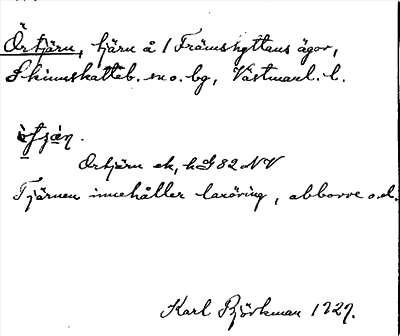 Örtjärn, tjärn å / Främshyttans ägor,
Skinnskatteb. sn o. bg, Västmanl. l.
Örtjärn ek, h G 82 NV
Tjärnen innehåller laxöring, abborre o.d.
Karl Björkman 1927.